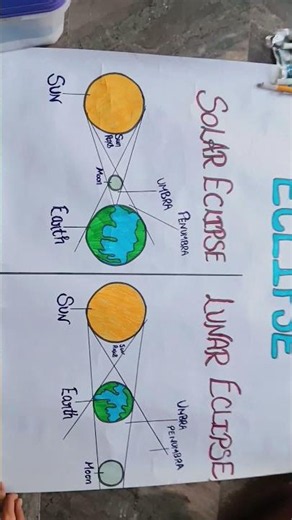 ECLIPSE
SOLAR ECLIPSE
SUN
Sun
Moon
UMBRA
PENUMBRA
Earth
LUNAR ECLIPSE
SUN
Sun
Earth
UMBRA
PENUMBRA
Moon